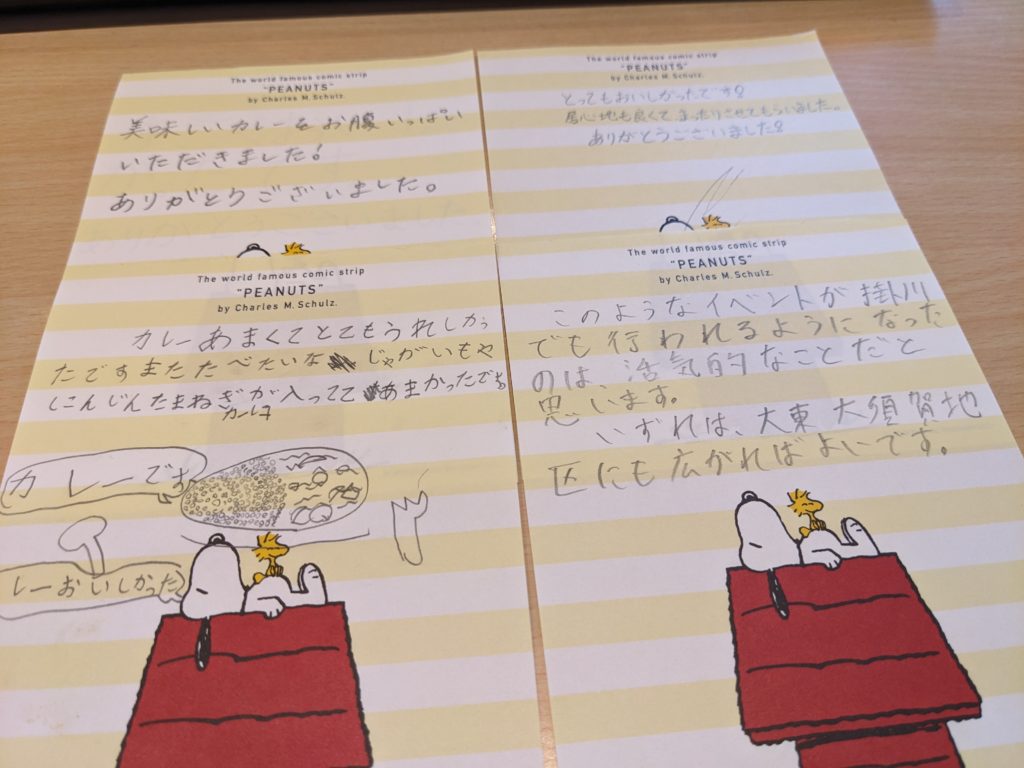 The world famous comic strip
"PEANUTS"
by Charles M. Schulz.
美味しいカレーをお腹いっぱい
いただきました!
ありがとうございました。
The world famous comic strip
"PEANUTS"
by Charles M. Schulz.
とってもおいしかったです!
居心地も良くてまったりさせてもらいました。
ありがとうございました!
The world famous comic strip
"PEANUTS"
by Charles M. Schulz.
カレーあまくてとてもうれしかっ
たですまたたべたいな じゃがいもや
にんじんたまねぎが入ってて あまかったです
カレーです
レーおいしかった
The world famous comic strip
"PEANUTS"
by Charles M. Schulz.
このようなイベントが掛川
でも行われるようになった
のは、活気的なことだと
思います。
いずれは、大東大須賀地
区にも広がればよいです。